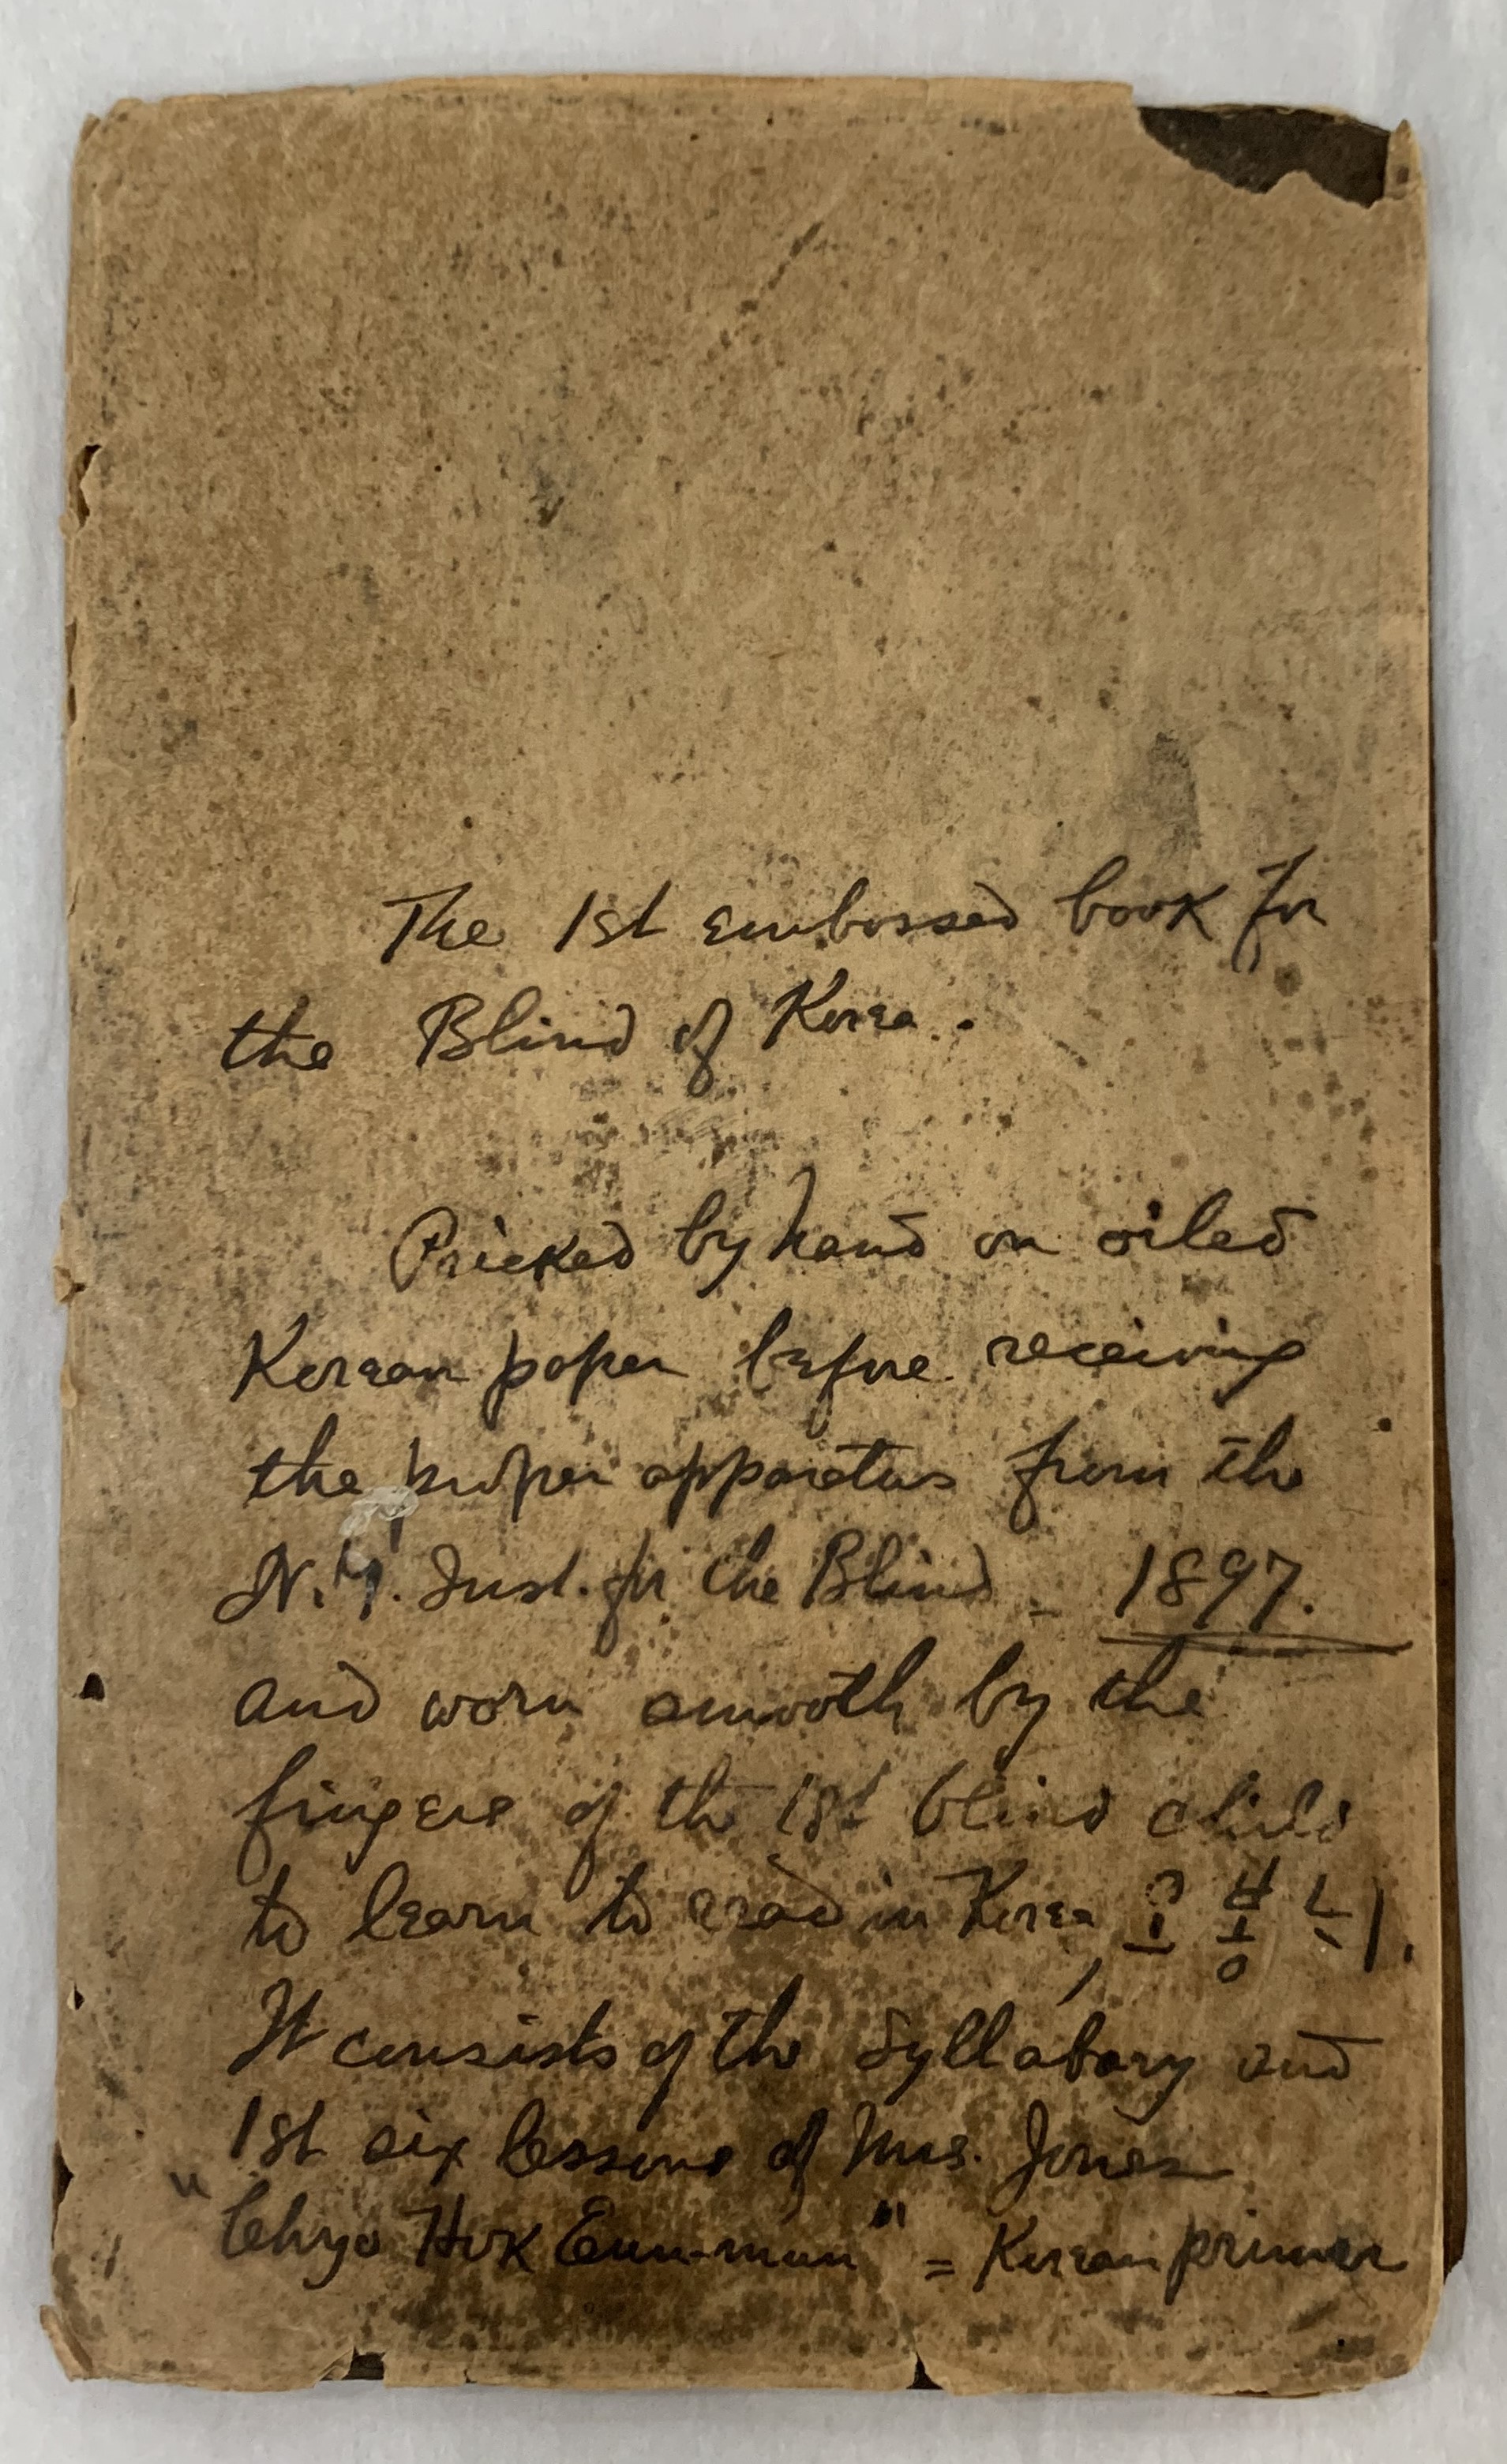 The 1st embossed book for
the Blind of Korea.
Pricked by hand on oiled
Korean paper before receiving
the proper apparatus from the
N.Y. Inst. for the Blind – 1897.
and worn smooth by the
fingers of the 1st blind child
to learn to read in Korea, 오봉ㄴ ㅣ.
It consists of the Syllabary and
1st six lessons of Mrs. Jones
"Chyo Hok Eun-mun" = Korean primer